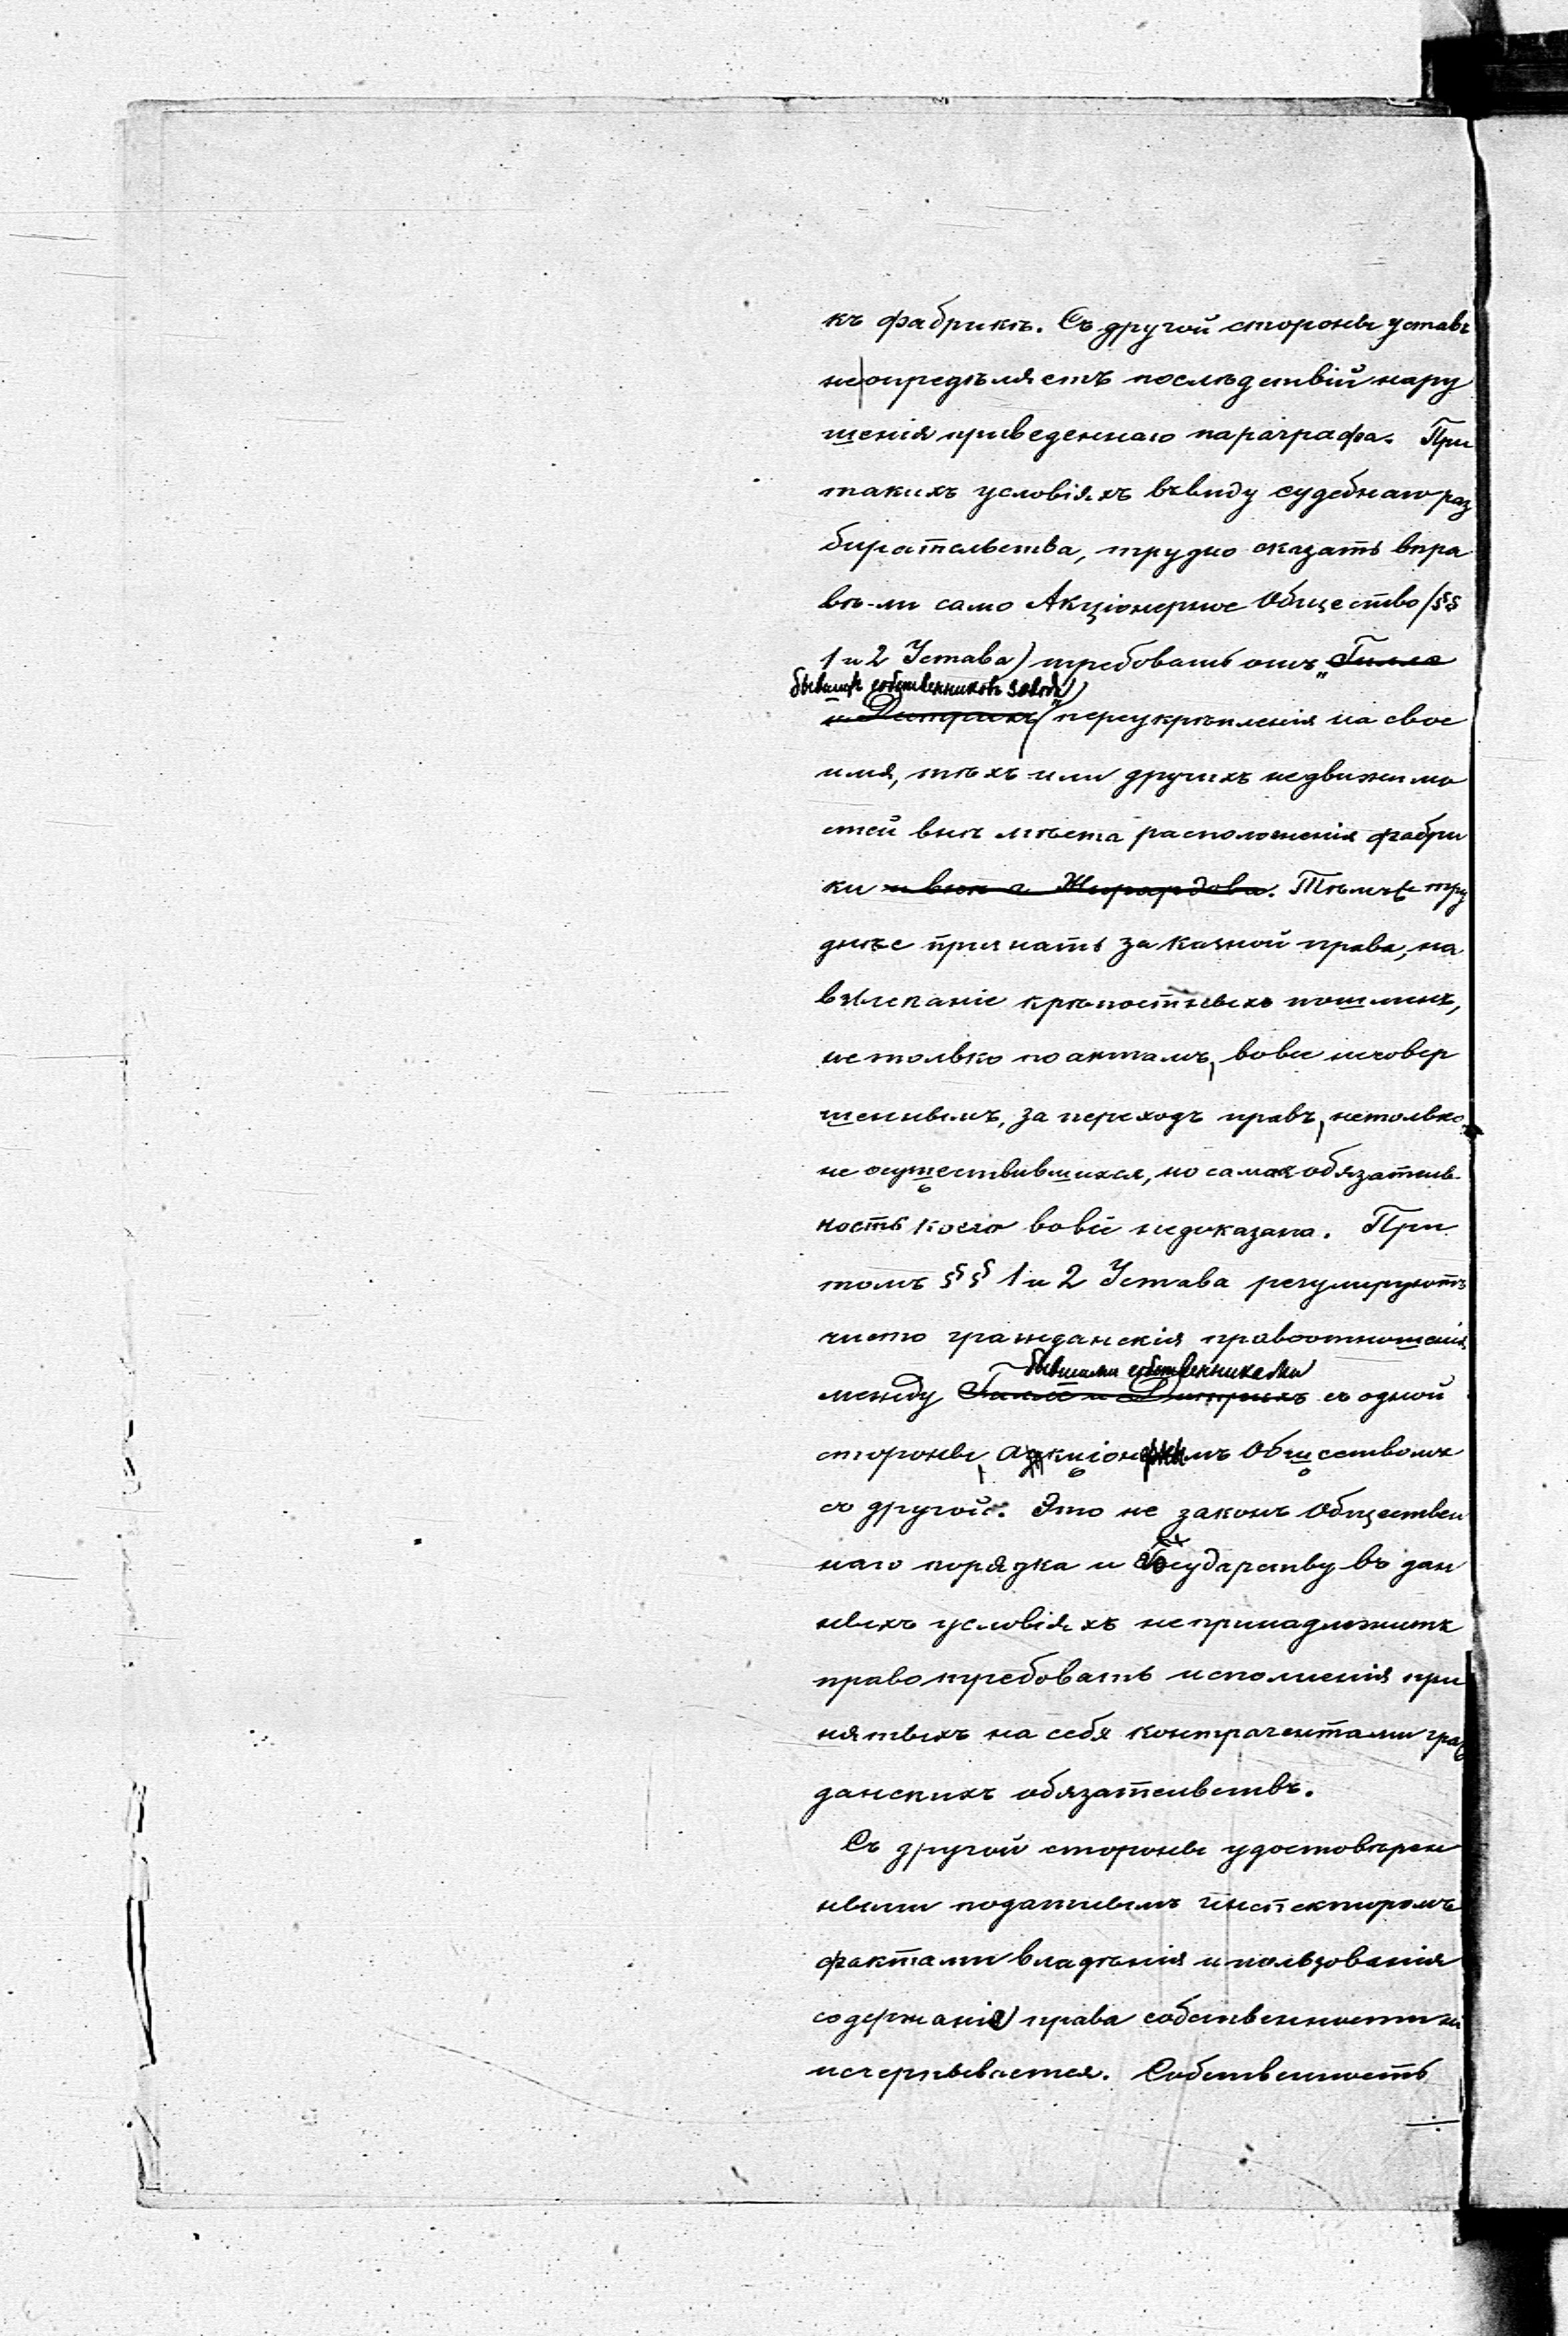 къ фабрикѣ. Съ другой стороны уставъ
не опредѣляетъ послѣдствій нару
шенія приведеннаго параграфа. При
такихъ условіяхъ ввиду судебнаго раз
бирательства, трудно сказать впра
вѣ-ли само Акціонерное Общество /§§
1 и 2 Устава) требовать отъ „Гилле
бывшихъ собственниковъ завода
и Дитрихъ" переукрѣпленія на свое
имя, тѣхъ или другихъ недвижимо
стей внѣ мѣста расположенія фабри
ки и внѣ г Жирардова. Тѣмъ тру
днѣе признать за казной права, на
взысканіе крѣпостныхъ пошлинъ,
не только по актамъ, вовсе несовер
шеннымъ, за переходъ правъ, нетолько
не осуществившихся, но самая обязатель
ность коего вовсе недоказана. При
томъ §§ 1 и 2 Устава регулируютъ
чисто гражданскія правоотношенія
бывшими собственниками
между Гилле и Дитрихъ съ одной
стороны, акціонернымъ Обществомъ
съ другой. Это не законъ Обществен
наго порядка и Государству въ дан
ныхъ условіяхъ не принадлежитъ
право требовать исполненія при
нятыхъ на себя контрагентами граж
данскихъ обязательствъ.
Съ другой стороны удостовѣрен
ными податнымъ инспекторомъ
фактами владѣнія и пользованія
содержаніе права собственности не
исчерпывается. Собственность